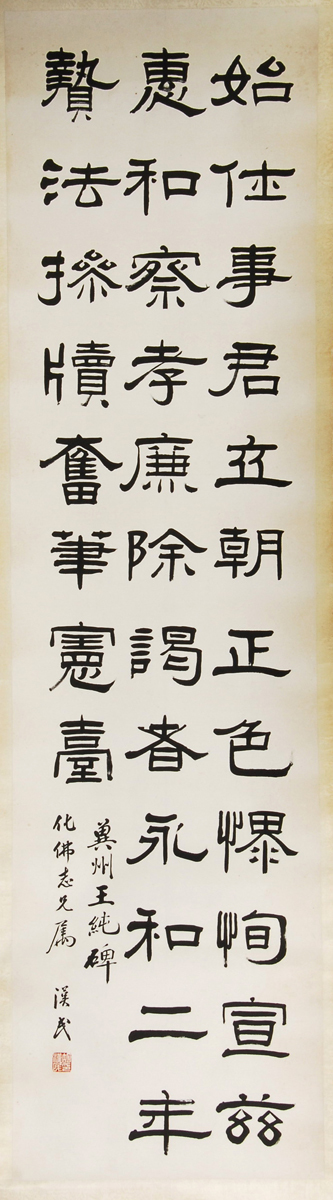 始仕事君立朝正色慓恂宣兹
惠和察孝廉除謁者永和二年
贊法操牘奮筆憲臺
冀州王純碑
化佛志兄属 漢民